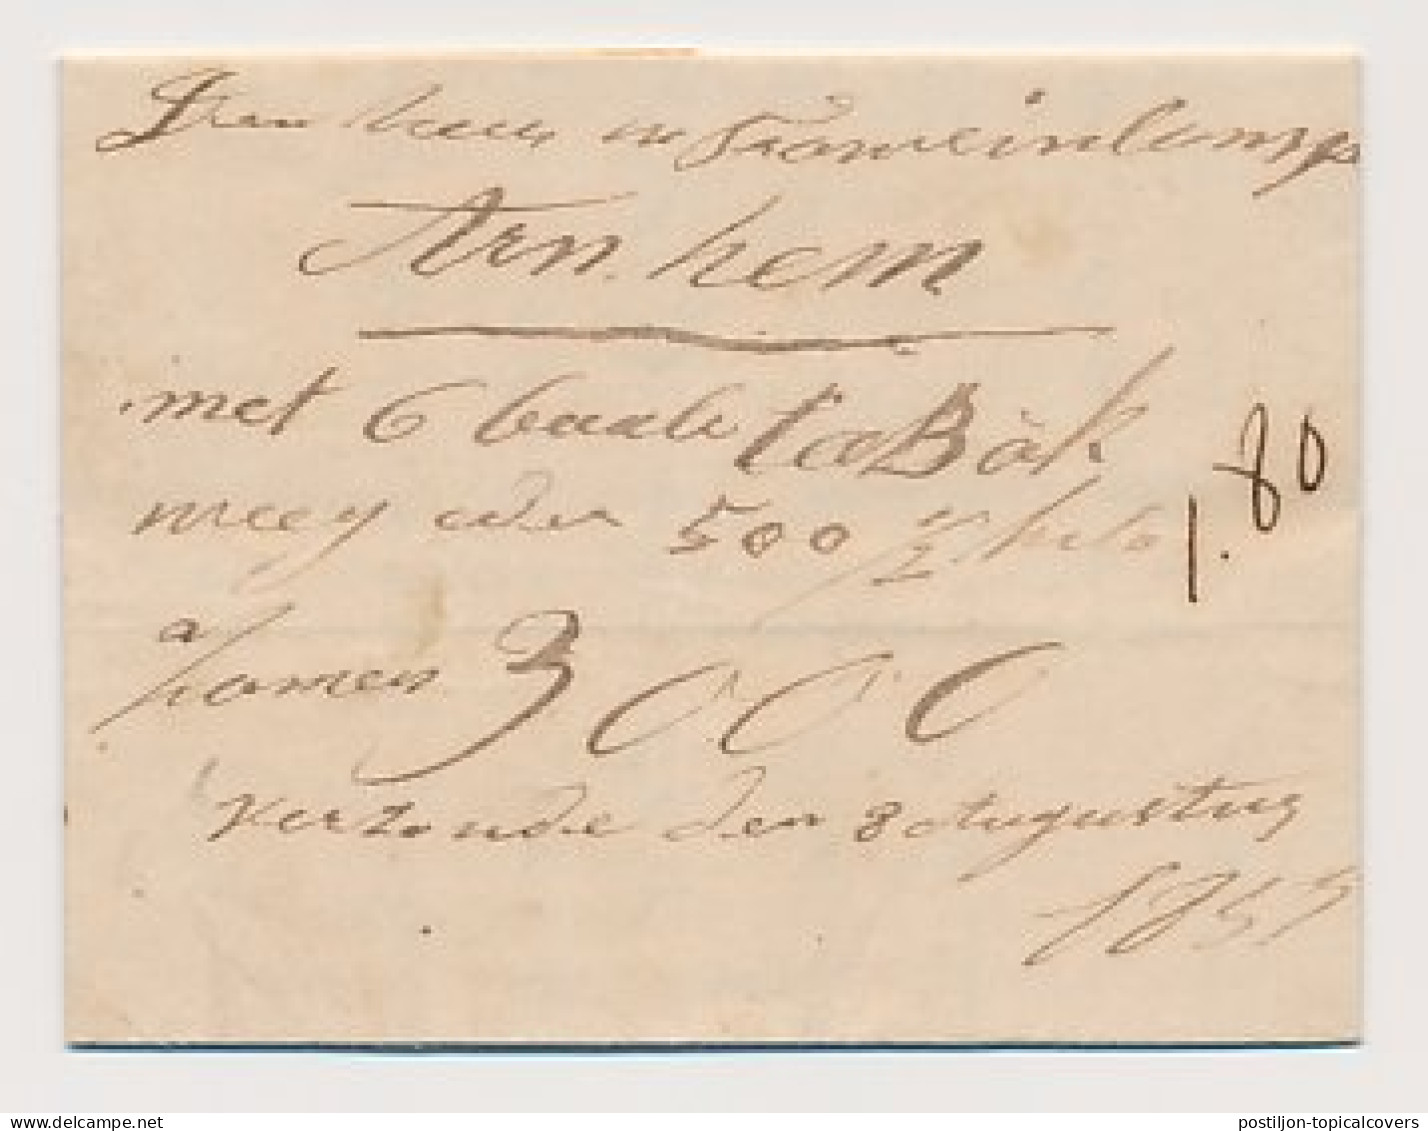 Den heer
Arnhem
met 6 baale TaBak
500 1/2 kilo
a
samen 3000
Verzonde den 8 Augustus
1857
1.80
www.delcampe.net
postiljon-topicalcovers